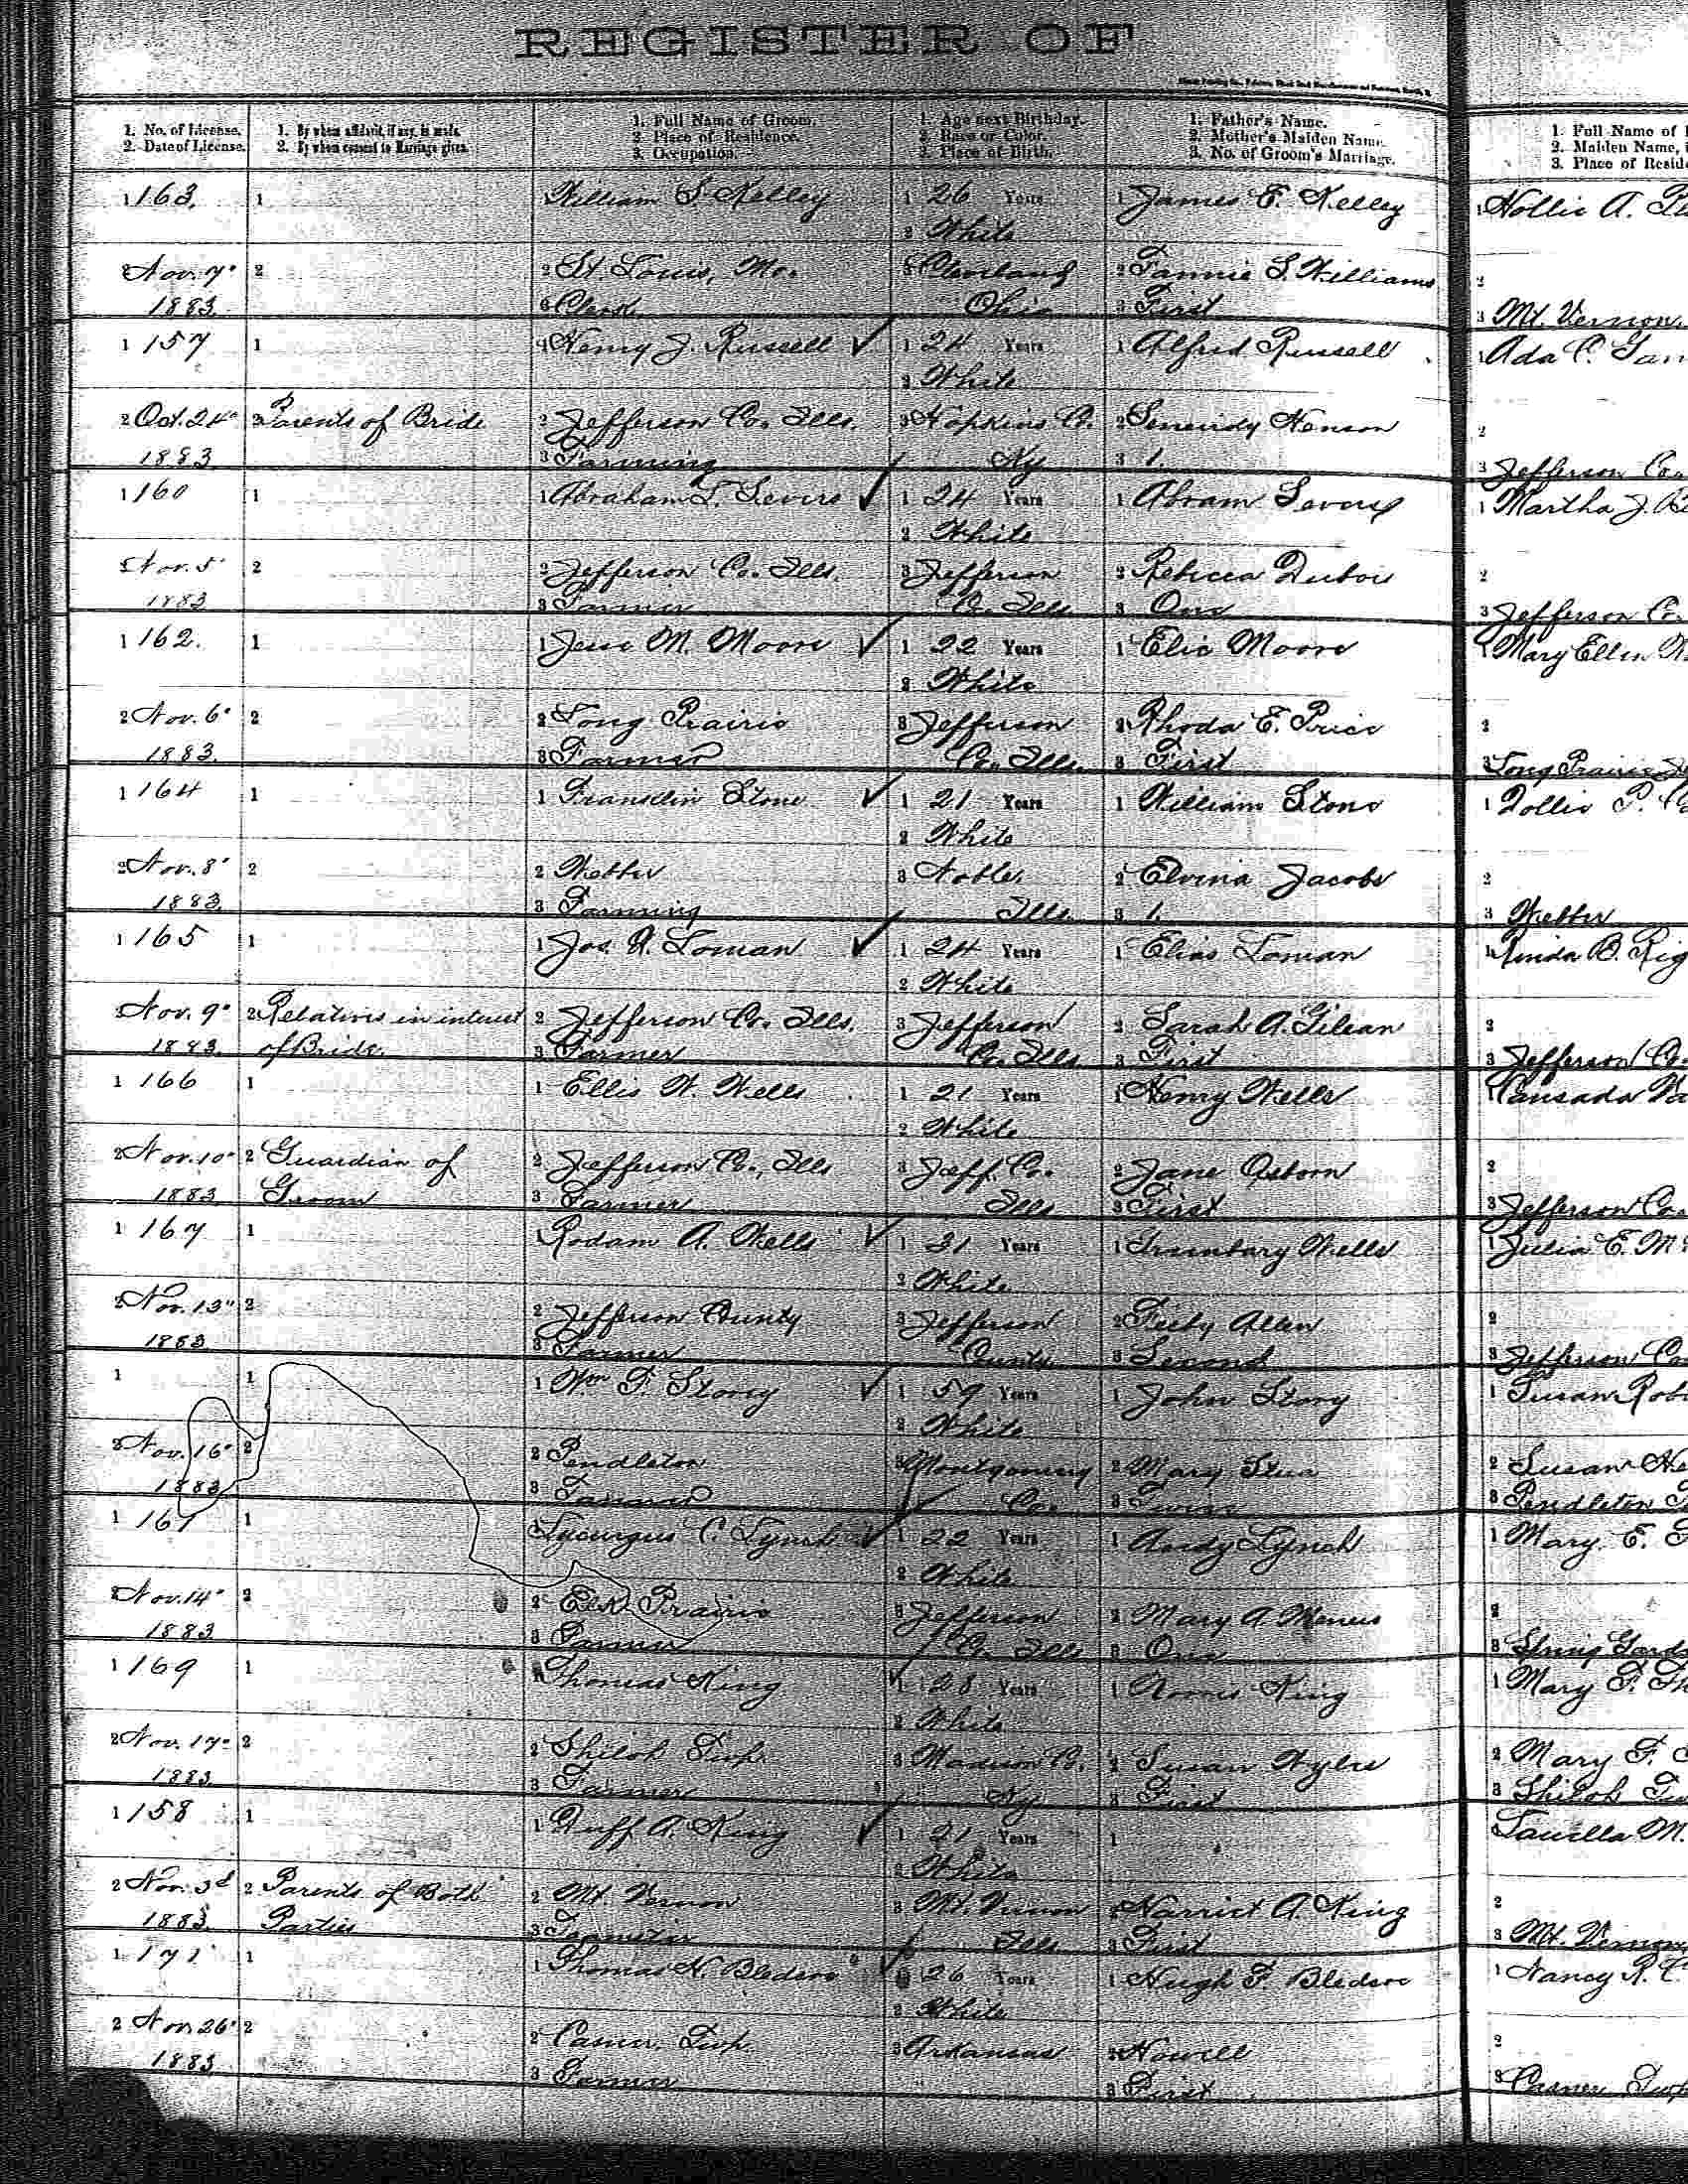 REGISTER OF
1. No. of License. 1. By whom affidavit, if any, is made. 1. Full Name of Groom. 1. Age next Birthday. 1. Father's Name. 1. Full Name of
2. Date of License. 2. By whom consent to Marriage given. 2. Place of Residence. 2. Race or Color. 2. Mother's Maiden Name. 2. Maiden Name,
3. Occupation. 3. Place of Birth. 3. No. of Groom's Marriage. 3. Place of Resid
1 163. 1 William S. Kelley 1 26 Years 1 James E. Kelley 1 Hollie A.
2 White
2 Nov. 7" 2 2 St Louis, Mo. 3 Cleveland 2 Fannie S. Williams 2
1883. 3 Clerk Ohio 3 First 3 Mt. Vernon,
1 157 1 1 Henry J. Russell 1 24 Years 1 Alfred Russell 1 Ada C.
2 White
2 Oct. 24" 2 Parents of Bride 2 Jefferson Co. Ills. 3 Hopkins Co. 2 Henson 2
1883 3 Farming Ky 3 1 3 Jefferson Co.
1 160 1 1 Abraham L. 1 24 Years 1 Abram 1 Martha J.
2 White
2 Nov. 5" 2 2 Jefferson Co. Ills. 3 Jefferson 2 Rebecca Dubois 2
1883 3 Farmer Co. Ills. 3 One 3 Jefferson Co.
1 162. 1 1 Jesse M. Moore 1 22 Years 1 Elic Moore 1 Mary Ellen
2 White
2 Nov. 6" 2 2 Long Prairie 3 Jefferson 2 Rhoda E. Price 2
1883. 3 Farmer Co. Ills. 3 First 3 Long Prairie
1 164 1 1 Franklin Stone 1 21 Years 1 William Stone 1 Dollie P.
2 White
2 Nov. 8" 2 2 Webber 3 Noble, 2 Elvina Jacobs 2
1883. 3 Farming Ills. 3 1. 3 Webber
1 165 1 1 Jos. W. Loman 1 24 Years 1 Elias Loman 1 B. Rig
2 White
2 Nov. 9" 2 Relatives in interest 2 Jefferson Co. Ills. 3 Jefferson 2 Sarah A. 2
1883. of Bride. 3 Farmer Co. Ills 3 First 3 Jefferson Co.
1 166 1 1 Ellis W. Wells 1 21 Years 1 Henry Wells 1
2 White
2 Nov. 10" 2 Guardian of 2 Jefferson Co., Ills 3 Jeff. Co. 2 Jane Osborn 2
1883. Groom 3 Farmer Ills 3 First 3 Jefferson Co.
1 167 1 Rodam A. Wells 1 31 Years 1 Wells 1 Julia E. M
2 White
2 Nov. 13" 2 2 Jefferson County 3 Jefferson 2 Allen 2
1883. 3 Farmer County 3 Second 3 Jefferson Co
1 1 1 Wm T. Storey 1 59 Years 1 John Story 1 Susan Rob
2 White
2 Nov. 16" 2 2 Pendleton 3 Montgomery 2 Mary 2 Susan
1883. 3 Farmer Co. 3 3 Pendleton
1 161 1 1 Lycurgus C. Lynch 1 22 Years 1 Andy Lynch 1 Mary. E.
2 White
2 Nov. 14" 2 2 Elk Prairie 3 Jefferson 2 Mary A. 2
1883. 3 Farmer Co. Ills 3 One 3 Spring Gard
1 169 1 1 Thomas King 1 28 Years 1 King 1 Mary F. Th
2 White
2 Nov. 17" 2 2 Shiloh Twp. 3 Madison Co. 2 Susan 2 Mary F.
1883. 3 Farmer Ky 3 First 3 Shiloh
1 158 1 1 Duff A. King 1 21 Years 1 M.
2 White
2 Nov. 3d 2 Parents of Both 2 Mt. Vernon 3 Mt. Vernon 2 Harriet A. King 2
1883. Parties 3 Teamster Ills 3 First 3 Mt. Vernon,
1 171 1 1 Thomas H. Bledsoe 1 26 Years 1 Hugh F. Bledsoe 1 Nancy R.
2 White
2 Nov. 26" 2 2 Casner Twp. 3 Arkansas 2 Howell 2
1883 3 Farmer 3 First 3 Casner Twp